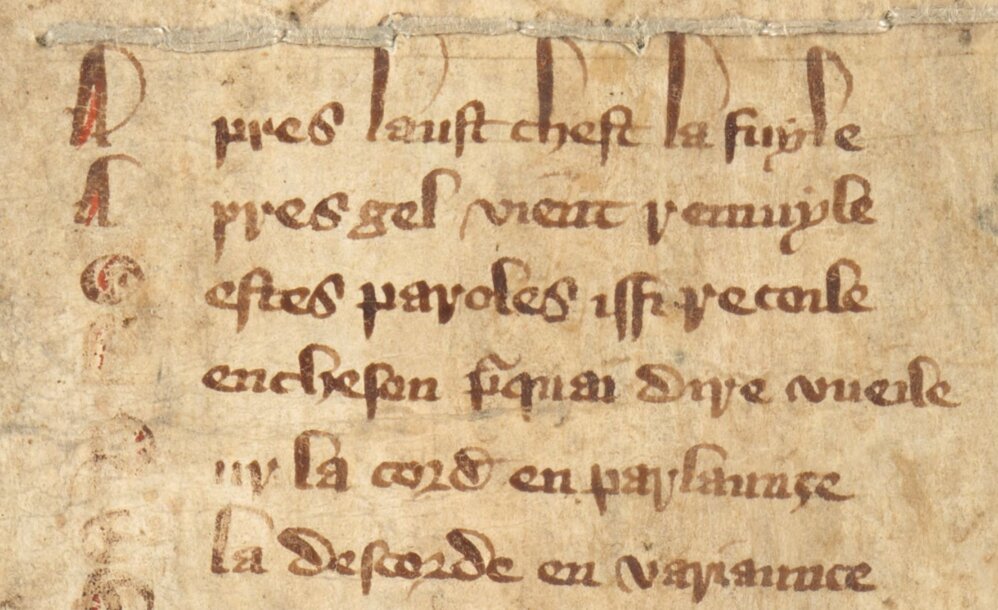 A pres laust chest la fuyle
A pres gel vient remuyle
C estes paroles issi recoile
encheson p̃quai dire vueile
ur la cord en parlaunçe
la descorde en variaunce